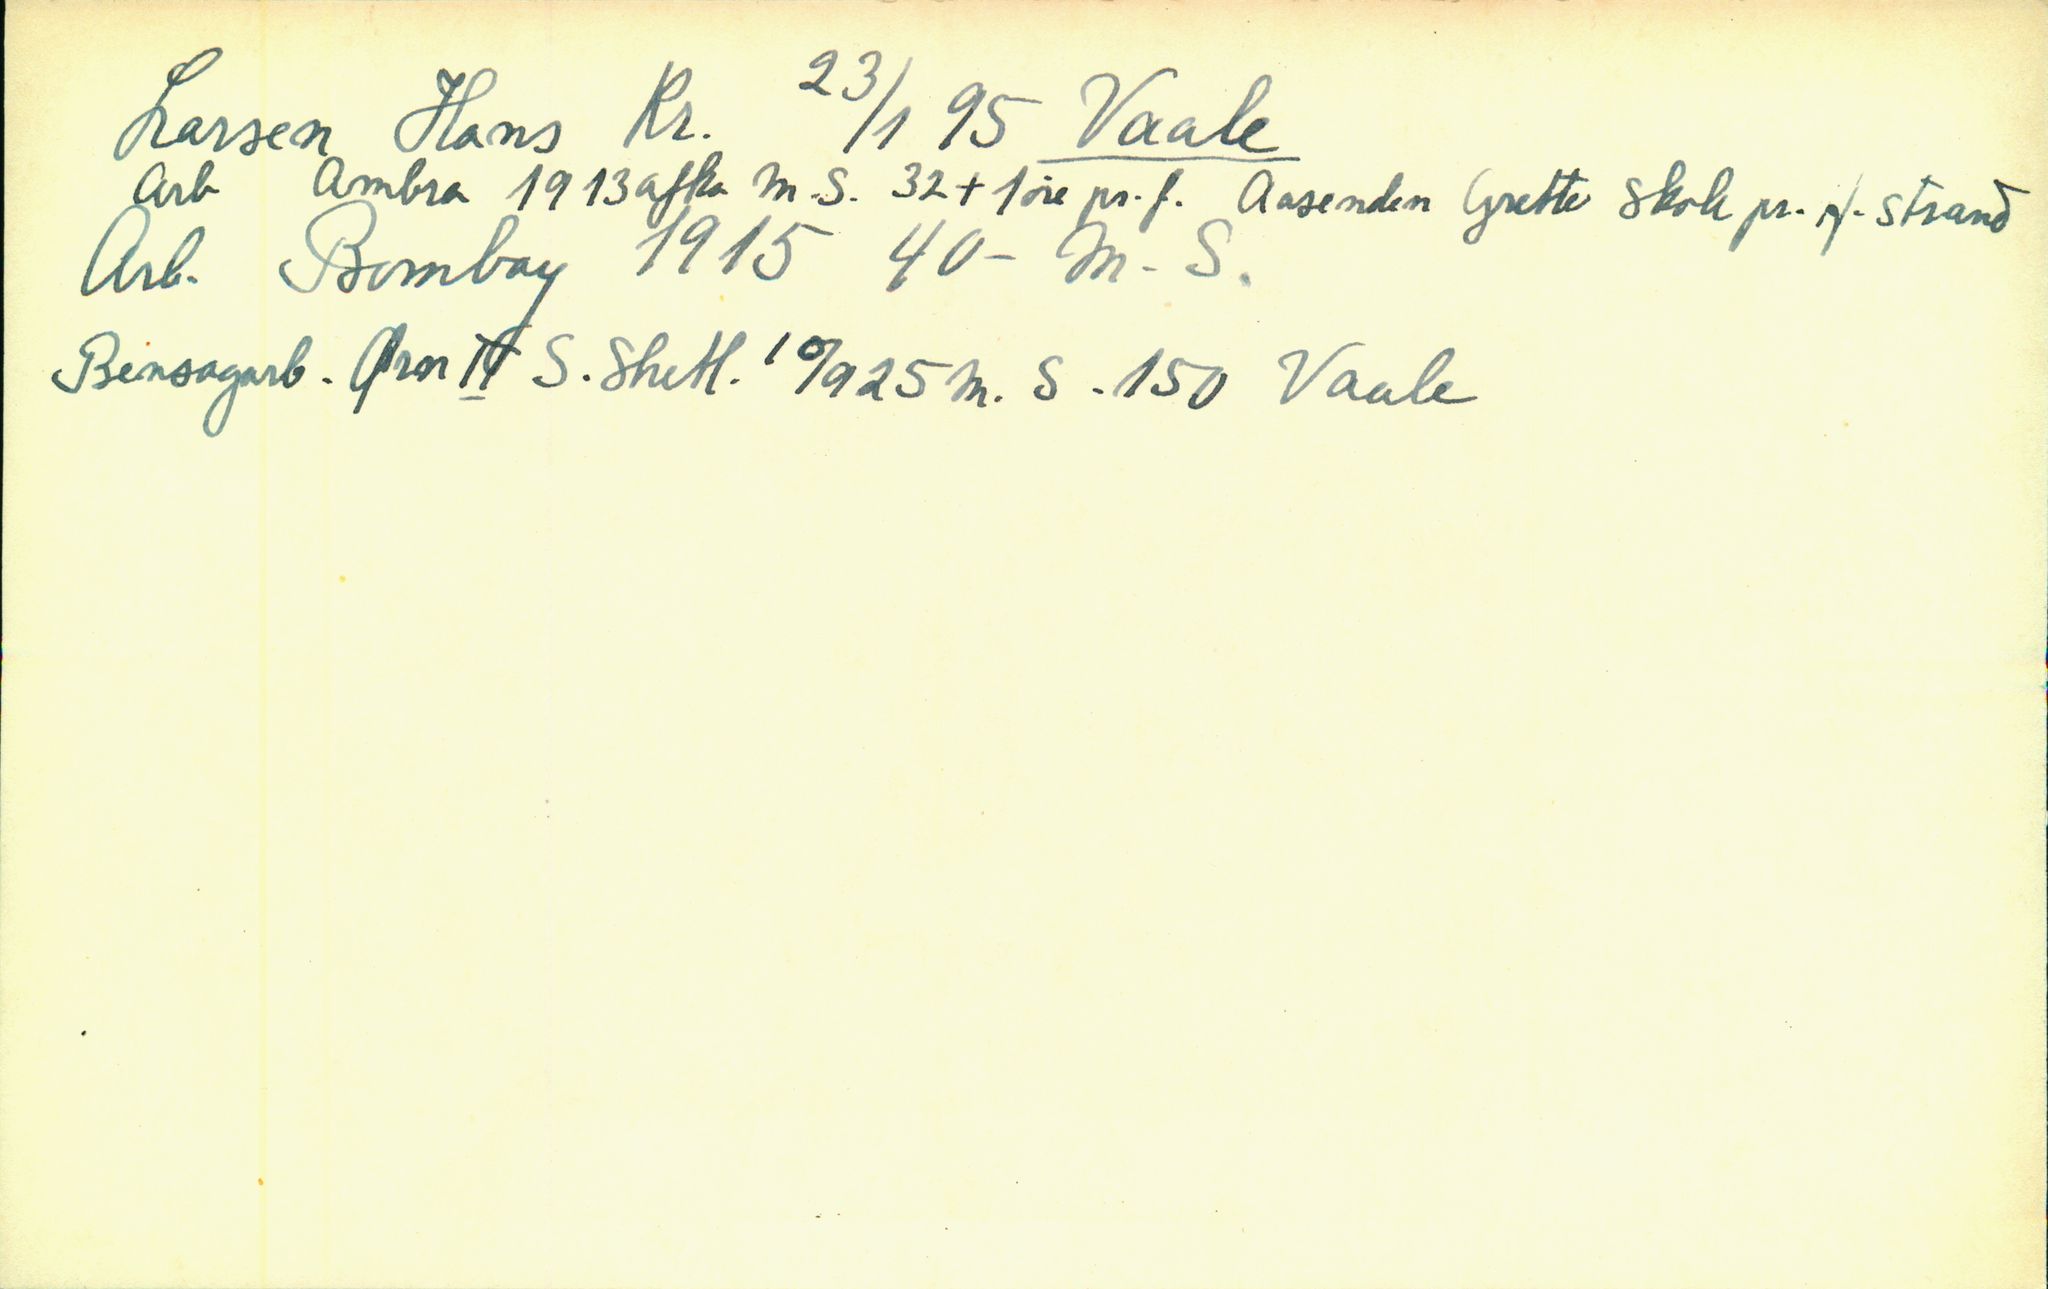 Larsen Hans Kr. 23/1 95 Vaale
Arb Ambra 1913 afka M.S. 32 + 1 öre pr. f. Aasenden Grette Skole pr. H. strand
Arb. Bombay 1915 40- M.S.
Bensagarb. Ørn II S. Shetl. 10/9 25 M. S. 150 Vaale